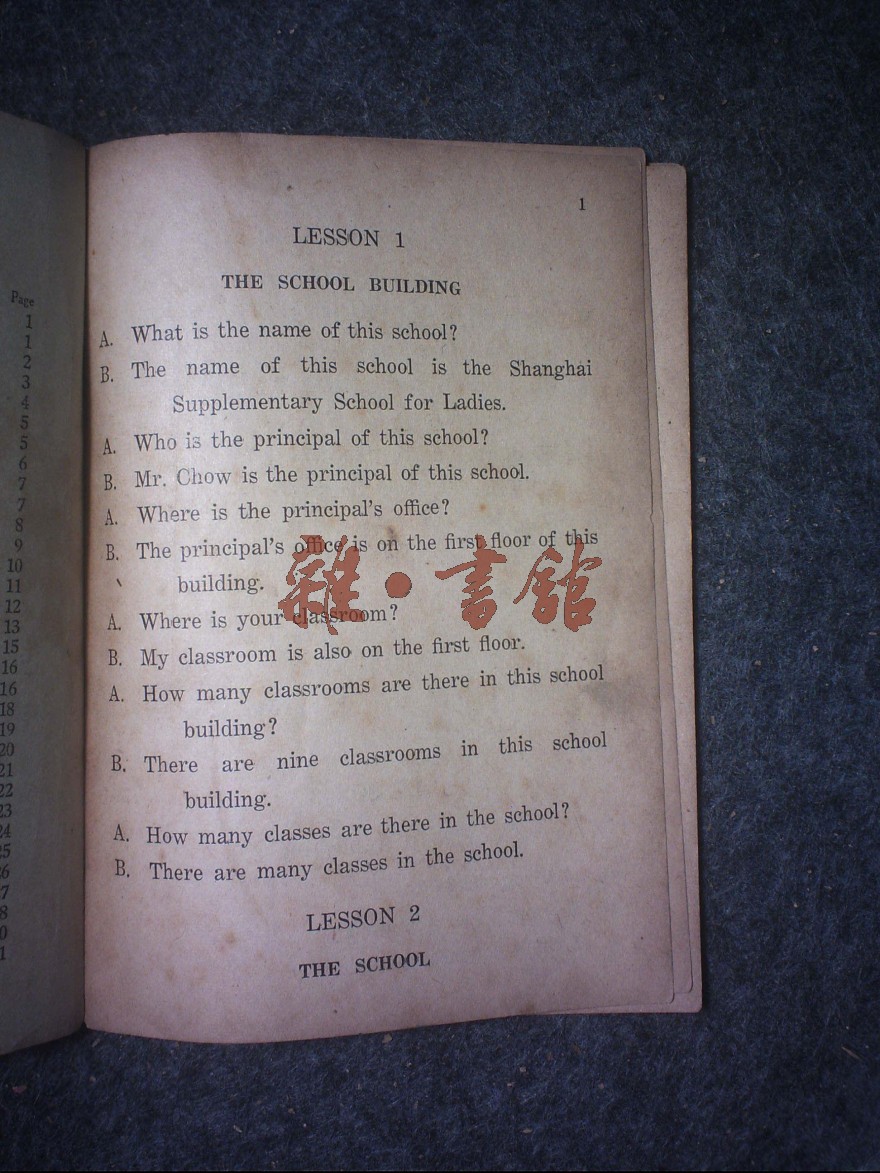 Page
1
1
2
3
4
5
5
6
7
7
8
9
10
11
12
13
15
16
16
18
19
20
21
22
23
24
25
26
7
8
0
1
1
LESSON 1
THE SCHOOL BUILDING
A. What is the name of this school?
B. The name of this school is the Shanghai
Supplementary School for Ladies.
A. Who is the principal of this school?
B. Mr. Chow is the principal of this school.
A. Where is the principal's office?
B. The principal's office is on the first floor of this
building.
A. Where is your classroom?
B. My classroom is also on the first floor.
A. How many classrooms are there in this school
building?
B. There are nine classrooms in this school
building.
A. How many classes are there in the school?
B. There are many classes in the school.
LESSON 2
THE SCHOOL
雜·書館